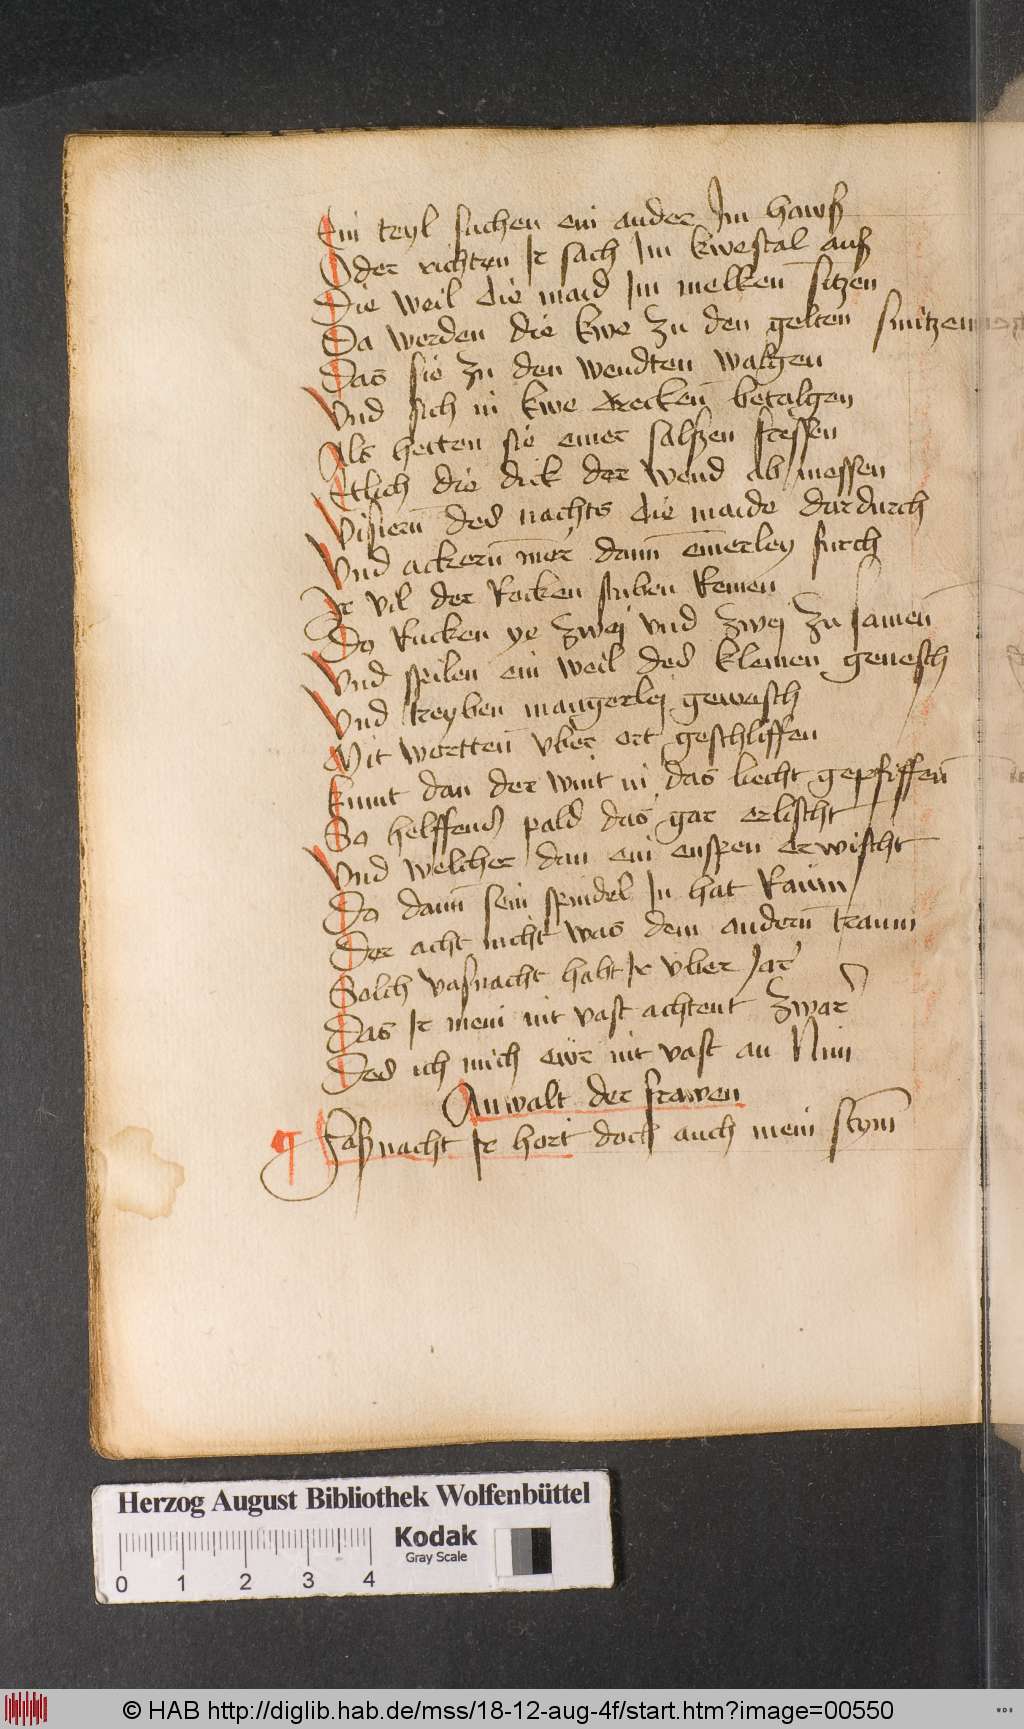 Ein teyl suchen ein ander Im hawß
Oder richten Ir sach Im kwestal auß
Die weil die maid Im melken sitzen
Da werden die kwe zu den gelten smitzen
Das sie zu den wendten walgen
Vnd sich in kwe drecken betalgen
Als hetten sie einer salßen fressen
Etlich die dick der wend ab messen
Visiern des nachts die maide dardurch
Vnd ackern mer dann einerley furch
Ir vil der Rocken stuben Remen
Do Rucken ye zwej vnd zwej zu samen
Vnd spilen ein weil des kleinen genesch
Vnd treyben mangerlej gewesch
Mit wortten vber ort geschliffen
Kumt dan der wint in das liecht gepfiffen
So helffens pald das gar erlischt
Vnd welcher dan ein enspen erwischt
Do dann sein spindel In hat Raum
Der acht nicht was dem andern traum
Solch vasnacht habt Ir vber Jar
Das Ir mein nit vast achtent zwar
Des ich mich ewr nit vast an Nim
Anwalt der frawen
Faßnacht Ir hort doch auch mein stym
Herzog August Bibliothek Wolfenbüttel
Kodak
Gray Scale
0 1 2 3 4
© HAB http://diglib.hab.de/mss/18-12-aug-4f/start.htm?image=00550